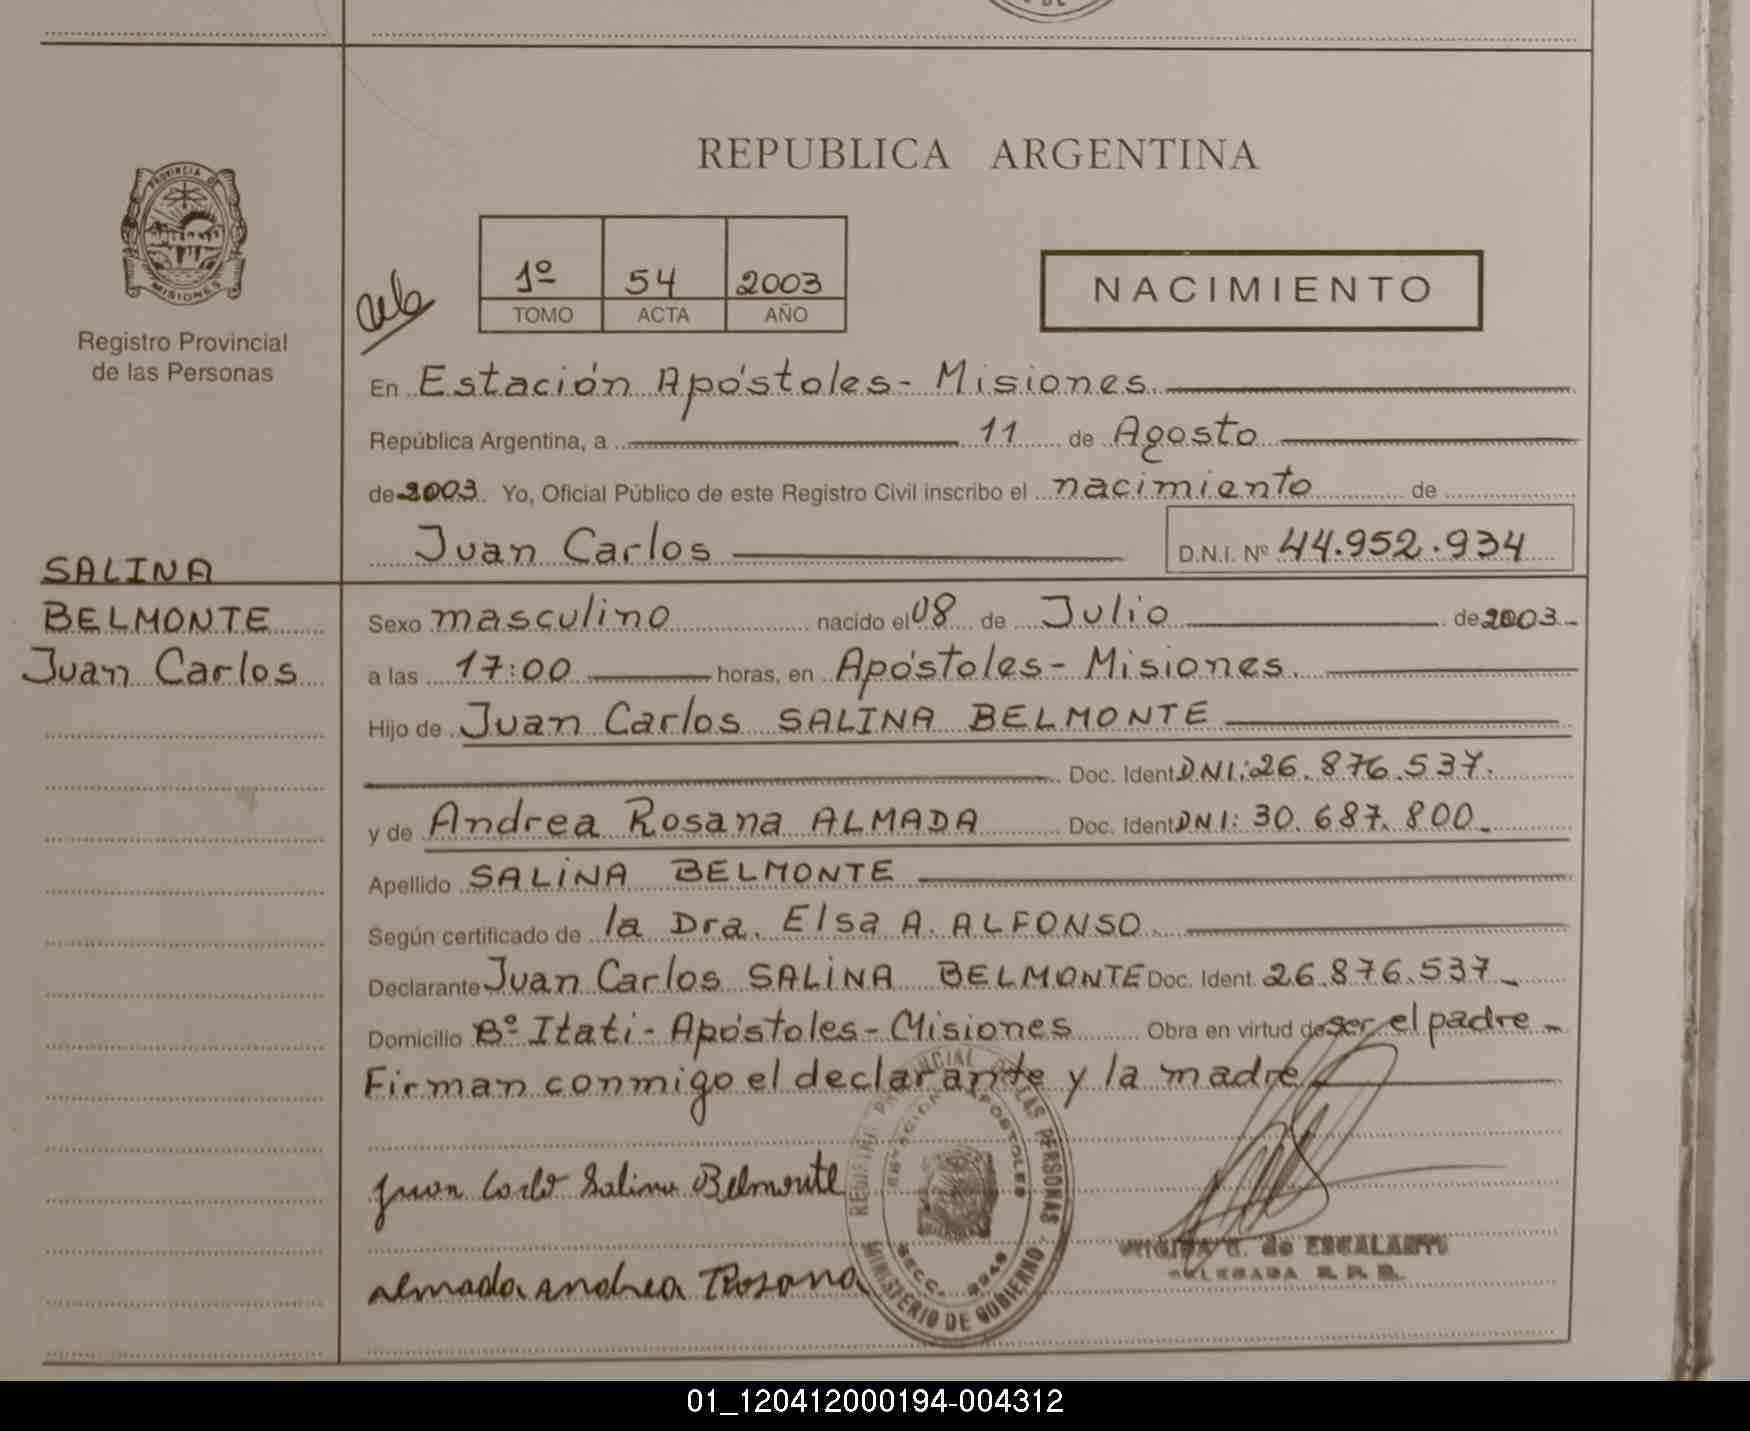 REPUBLICA ARGENTINA
PROVINCIA DE
MISIONES
Registro Provincial
de las Personas
1º 54 2003
TOMO ACTA AÑO
NACIMIENTO
En Estación Apóstoles - Misiones.
República Argentina, a 11 de Agosto
de 2003 Yo, Oficial Público de este Registro Civil inscribo el nacimiento de
Juan Carlos D.N.I. Nº 44.952.934
SALINA
BELMONTE
Juan Carlos
Sexo masculino nacido el 08 de Julio de 2003.-
a las 17:00 horas, en Apóstoles - Misiones.
Hijo de Juan Carlos SALINA BELMONTE
Doc. Ident DNI: 26.876.537.
y de Andrea Rosana ALMADA Doc. Ident DNI: 30.687.800.-
Apellido SALINA BELMONTE
Según certificado de la Dra. Elsa A. ALFONSO
Declarante Juan Carlos SALINA BELMONTE Doc. Ident. 26.876.537.-
Domicilio Bº Itati - Apóstoles - Misiones Obra en virtud de ser el padre.-
Firman conmigo el declarante y la madre
Juan Carlo Salina Belmonte
almada andrea Rosana
REGISTRO PROVINCIAL DE LAS PERSONAS
ESTACION APOSTOLES
MINISTERIO DE GOBIERNO
de ESCALANTE
DELEGADA R. P. P.
01_120412000194-004312